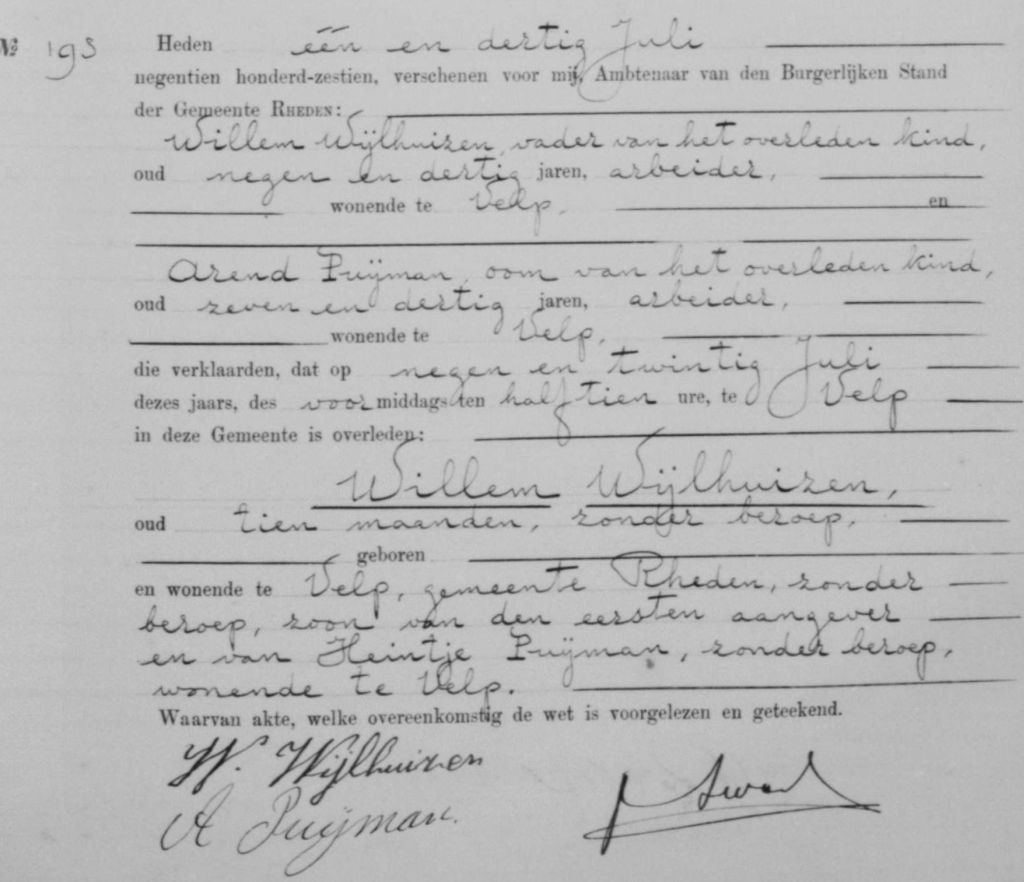 Nº 193 Heden één en dertig Juli
negentien honderd-zestien, verschenen voor mij, Ambtenaar van den Burgerlijken Stand
der Gemeente RHEDEN:
Willem Wijlhuizen, vader van het overleden kind,
oud negen en dertig jaren, arbeider,
wonende te Velp, en
Arend Puijman, oom van het overleden kind,
oud zeven en dertig jaren, arbeider,
wonende te Velp,
die verklaarden, dat op negen en twintig Juli
dezes jaars, des voormiddags ten half tien ure, te Velp
in deze Gemeente is overleden:
Willem Wijlhuizen,
oud tien maanden, zonder beroep,
geboren
en wonende te Velp, gemeente Rheden, zonder
beroep, zoon van den eersten aangever
en van Heintje Puijman, zonder beroep,
wonende te Velp.
Waarvan akte, welke overeenkomstig de wet is voorgelezen en geteekend.
W. Wijlhuizen
A Puijman.